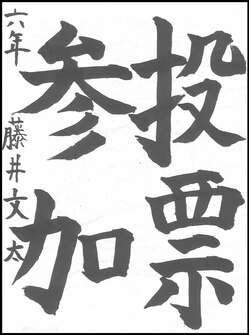 投票
参加
六年 藤井文太